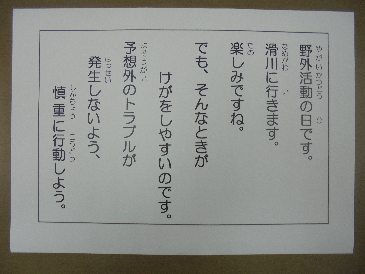 野外活動の日です。
滑川に行きます。
楽しみですね。
でも、そんなときが
けがをしやすいのです。
予想外のトラブルが
発生しないよう、
慎重に行動しよう。